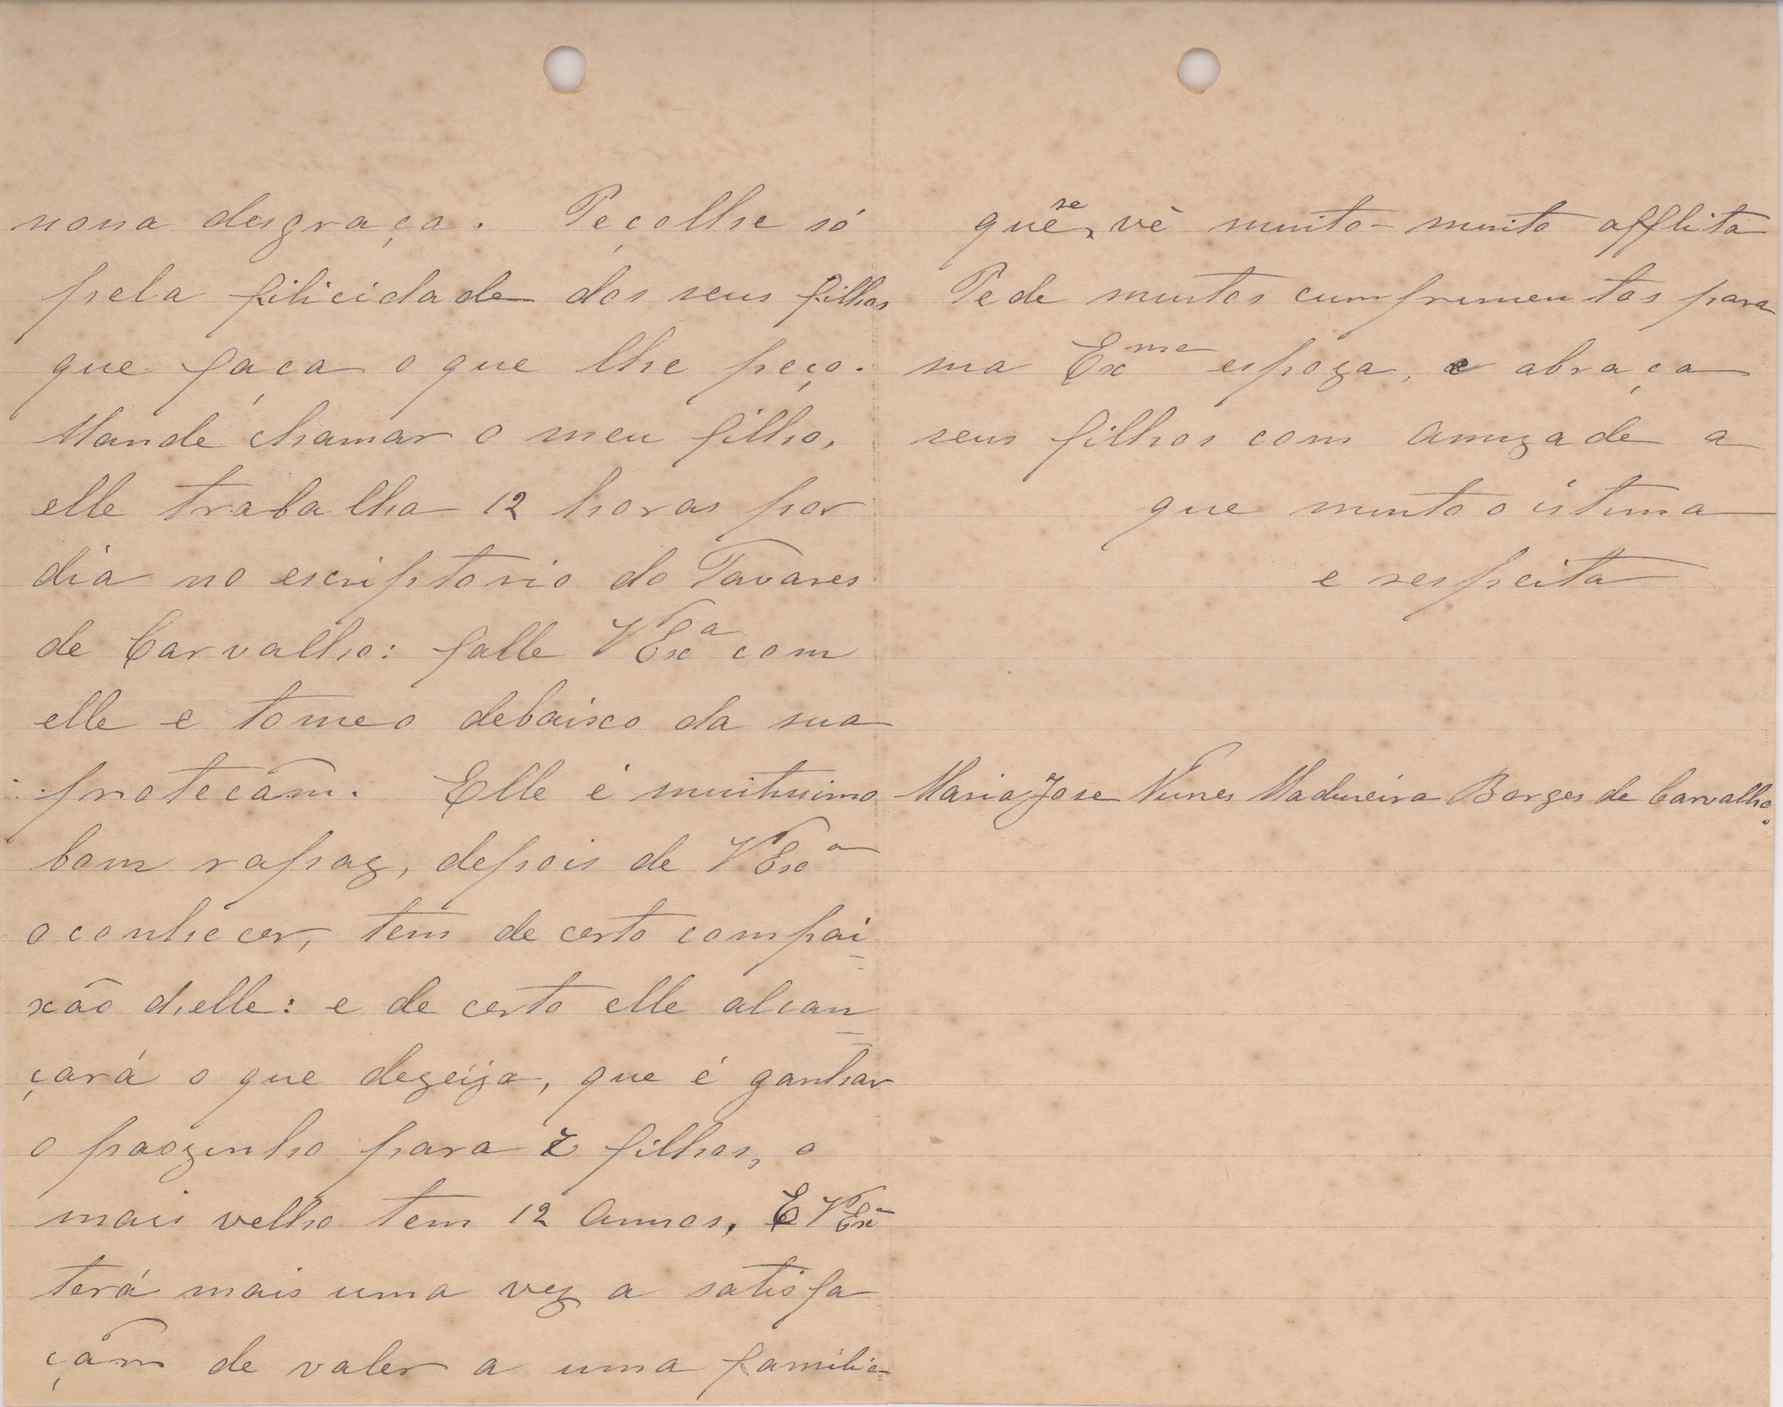 nossa desgraça. Peçolhe só
pela filicidade dos seus filhos
que faça o que lhe peço.
Mande chamar o meu filho,
elle trabalha 12 horas por
dia no escriptorio do Tavares
de Carvalho: falle VExª com
elle e tomeo debaixo da sua
protecâm. Elle é muitissimo
bom rapaz, depois de VExª
o conhecer, tem de certo compai
xão d'elle: e de certo elle alcan
çará o que dezeija, que é ganhar
o paozinho para 7 filhos, o
mais velho tem 12 annos, E VExª
terá mais uma vez a satisfa
çâm de valer a uma familia
que se vê muito-muito afflita
Pede muitos cumprimentos para
sua Exma espoza, e abraça
seus filhos com amizade a
que muito o istima
e respeita
Maria Jose Nunes Madureira Borges de Carvalho.